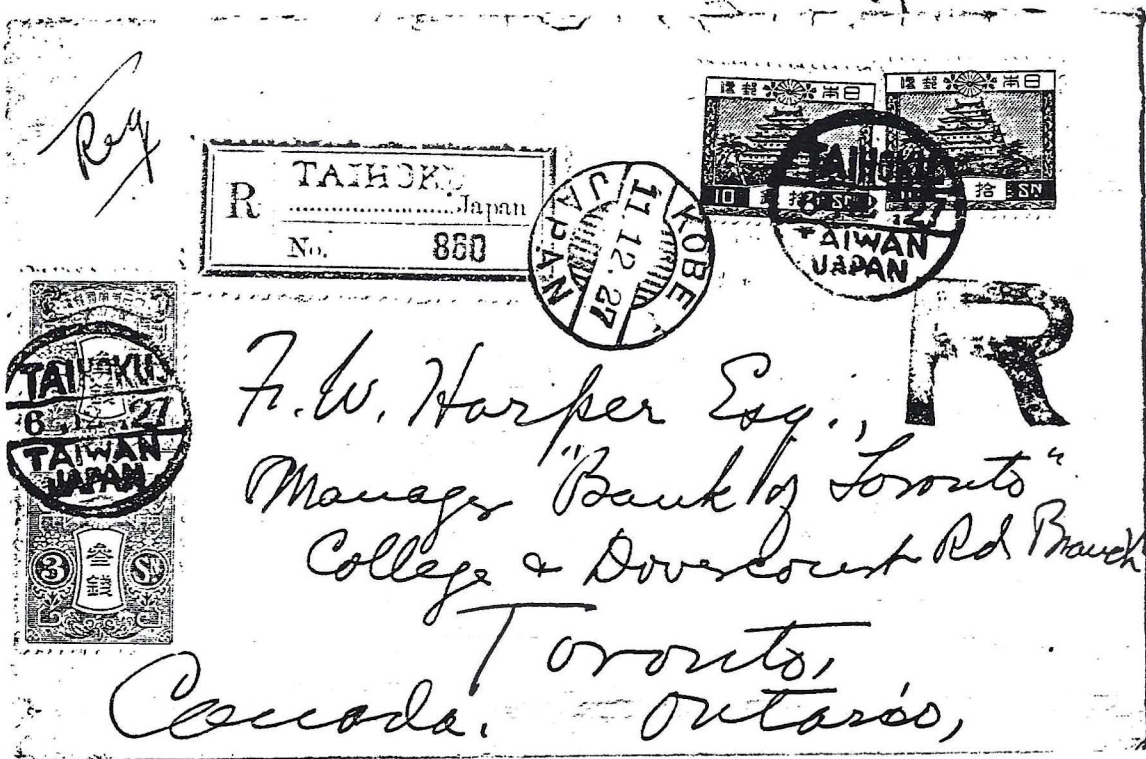 Reg
R TAIHOKU
Japan
No. 860
KOBE
11.12.27
JAPAN
日本郵便
10 SN
日本郵便
拾 SN
TAIHOKU
6.12.27
TAIWAN
JAPAN
R
TAIHOKU
6.12.27
TAIWAN
JAPAN
3 参銭 Sn
F. W. Harper Esq.,
Manager "Bank of Toronto"
College & Dovercourt Rd Branch
Toronto,
Canada. Ontario,